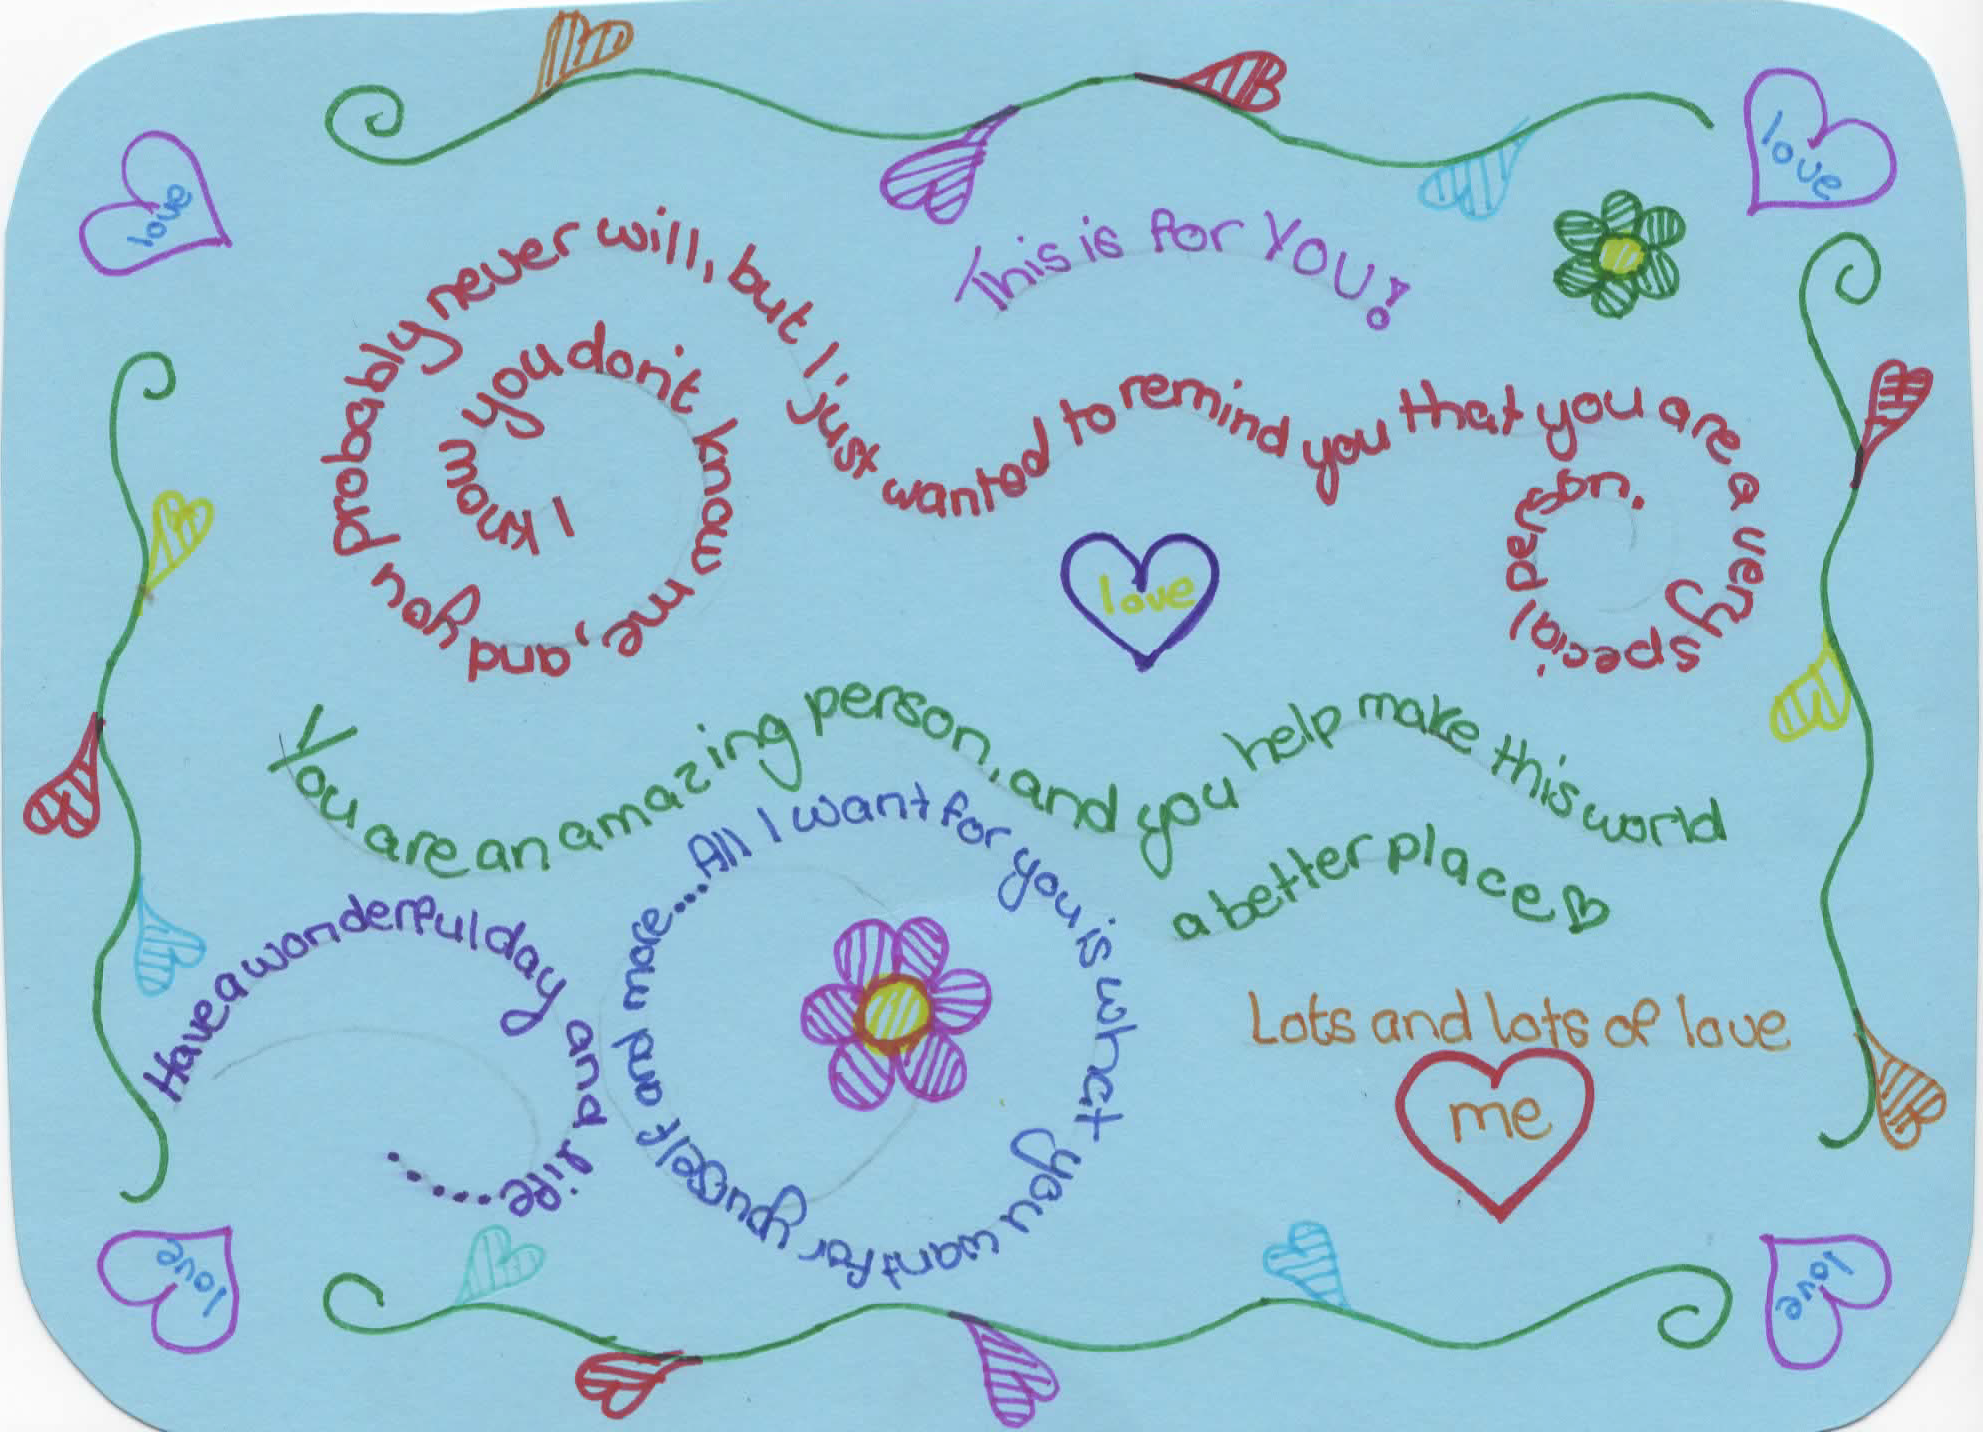 love
love
This is for YOU!
I know you don't know me, and you probably never will, but I just wanted to remind you that you are a very special person.
love
You are an amazing person, and you help make this world
a better place
All I want for you is what you want for yourself and more...
Have a wonderful day and life.....
Lots and lots of love
me
love
love